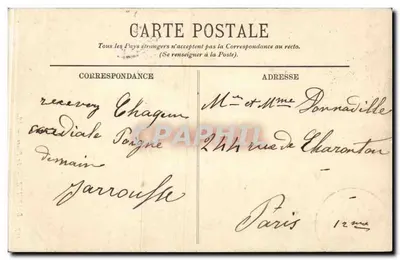 CARTE POSTALE
Tous les Pays étrangers n'acceptent pas la Correspondance au recto.
(Se renseigner à la Poste).
CORRESPONDANCE
recevez Chaqeun
cordiale Poigné
demain
Jarrousse
ADRESSE
Mr et Mme Donnadille
244 rue de Charonton
Paris
12me
CPARAMA